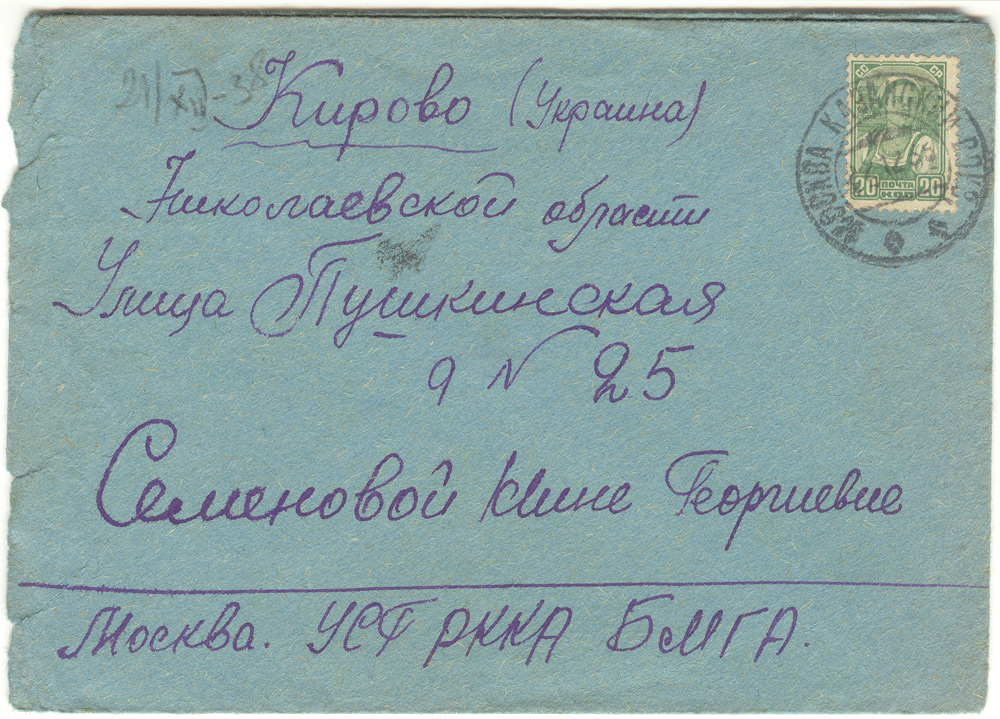 21/XII-38
Кирово (Украина)
Николаевской области
Улица Пушкинская
д N 25
Семеновой Нине Георгиевне
Москва. УСГ РККА БМГА.
СС СР
20 ПОЧТА 20
КОП
МОСКВА